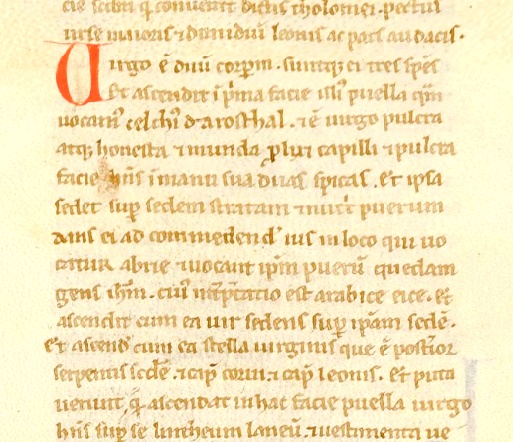 cie scđm q̃ conuenit dictis tholomei. pectus
urse maioris ⁊ dimidiũ leonis ac pars au dacis.
Uirgo ẽ duũ corpm̃. suntqꝫ ei tres spẽs
Et ascendit ĩ pima facie isti puella qm̃
uocam̃ celchi đarosthal. ⁊ ẽ uirgo pulcra
atqꝫ honesta ⁊ munda plixi capilli ⁊ pulcra
facie hñs ĩ manu sua duas spicas. Et ipsa
sedet sup̃ sedem stratam ⁊ nut't puerum
dans ei ad commedenđ ius in loco qui uo
catur abrie ⁊ uocant ipm̃ puerũ quedam
gens ihm̃. cuiꝰ int̃p̃tatio est arabice eice. Et
ascendit cum ea uir sedens sup̃ ip̃am sedẽ.
Et ascenđ cum ea stella uirginis que ẽ post̃ior
serpentis sccłe. ⁊ cap̃ corui. ⁊ cap̃ leonis. Et puta
uerunt q̃ ascendat in hac facie puella uirgo
hñs sup̃ se lintheum laneũ. ⁊ uestimenta ue